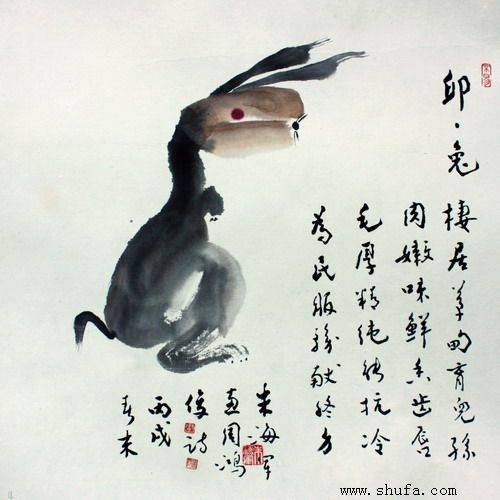 卯·兔
棲居草甸育兒孫
肉嫩味鮮香齿唇
毛厚精纯能抗冷
為民服務献终身
朱海军
画周鸿
俊诗
丙戌
春末
www.shufa.com